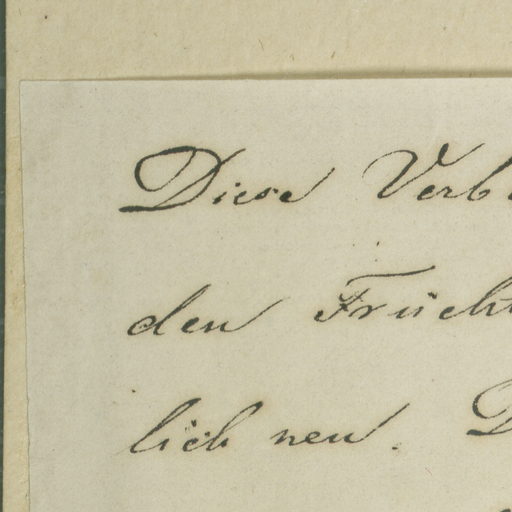 Diese Verb
den Frücht
lich neu. D